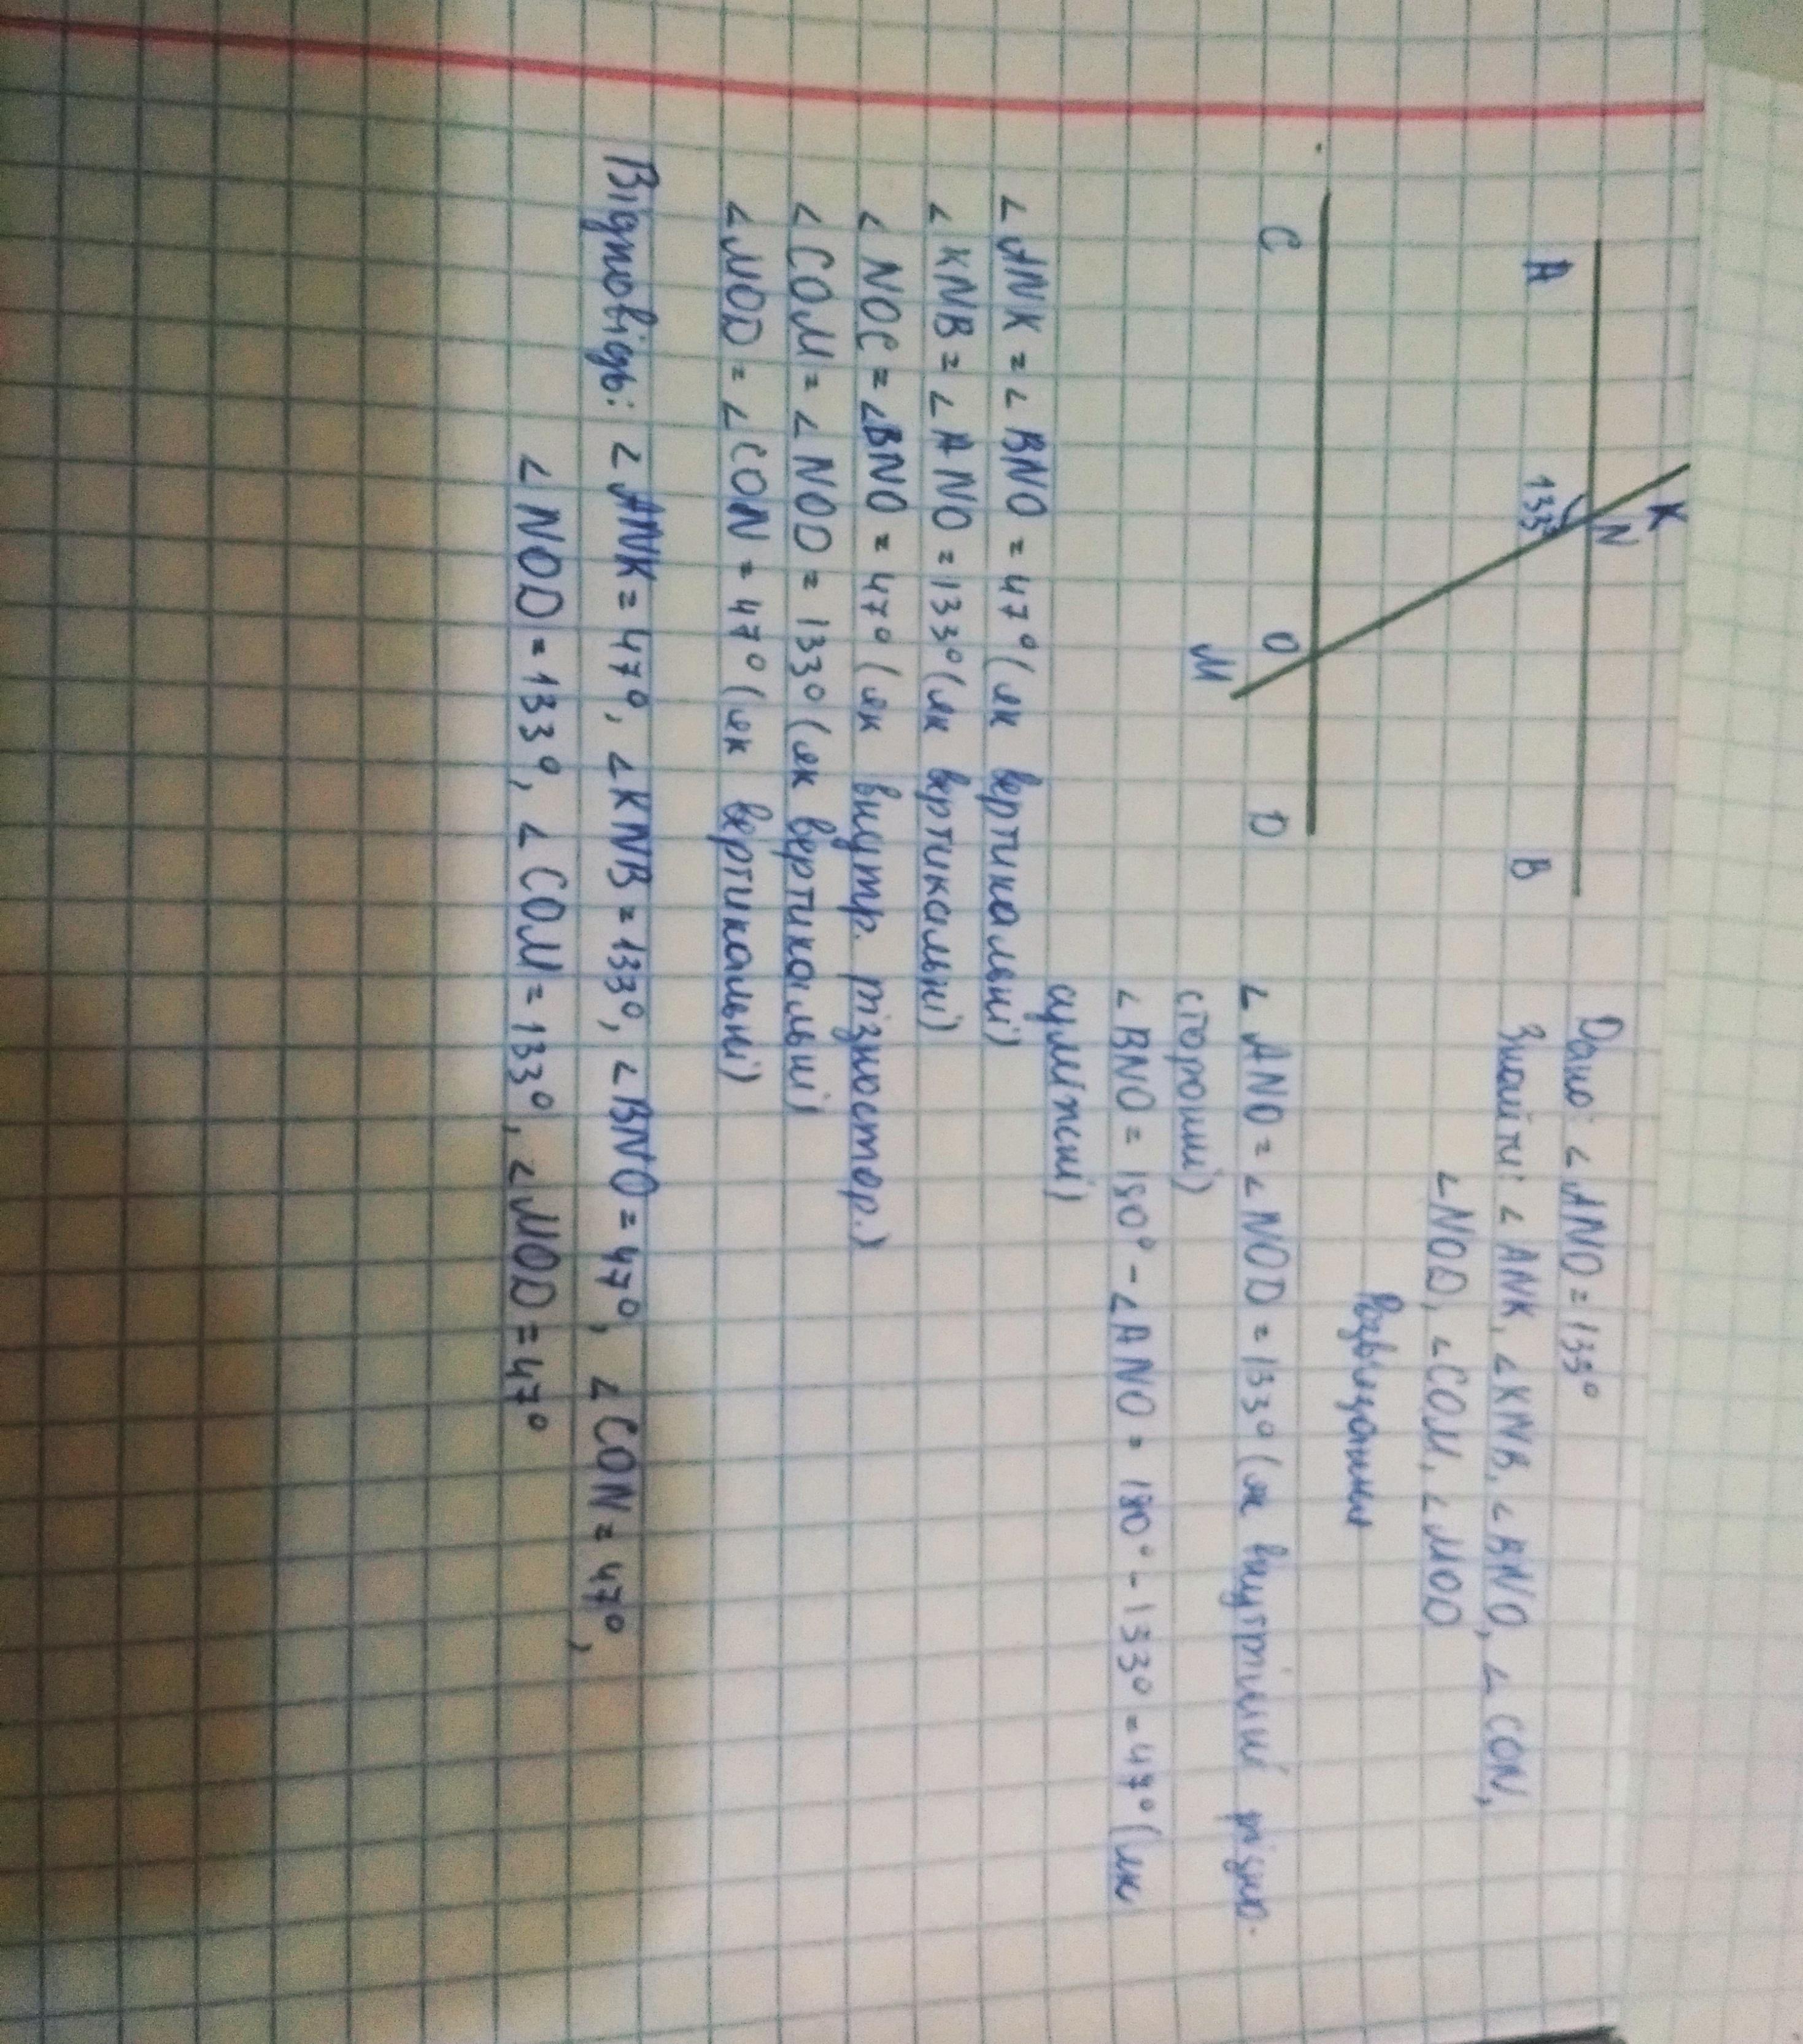 K
N
A
133°
B
C
O
D
M
Дано: ∠ANO = 133°
Знайти: ∠ANK, ∠KNB, ∠BNO, ∠CON,
∠NOD, ∠COM, ∠MOD
Розв'язання
∠ANO = ∠NOD = 133° (як внутрішні різно-
сторонні)
∠BNO = 180° - ∠ANO = 180° - 133° = 47° (як
суміжні)
∠ANK = ∠BNO = 47° (як вертикальні)
∠KNB = ∠ANO = 133° (як вертикальні)
∠NOC = ∠BNO = 47° (як внутр. різностор.)
∠COM = ∠NOD = 133° (як вертикальні)
∠MOD = ∠CON = 47° (як вертикальні)
Відповідь: ∠ANK = 47°, ∠KNB = 133°, ∠BNO = 47°, ∠CON = 47°,
∠NOD = 133°, ∠COM = 133°, ∠MOD = 47°